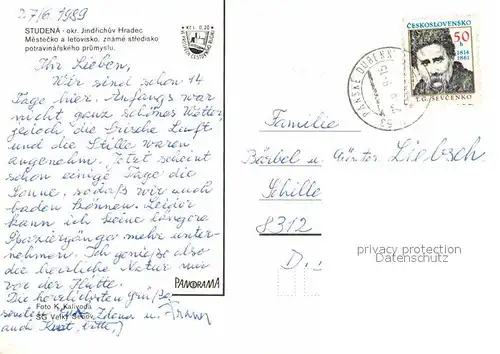 27/6. 1989
STUDENÁ - okr. Jindřichův Hradec
Městečko a letovisko, známé středisko
potravinářského průmyslu.
Kčs 0,20
Ihr Lieben,
Wir sind schon 14
Tage hier. Anfangs war
nicht ganz schönes Wetter
jedoch, die frische Luft
und die Stille waren
angenehm. Jetzt scheint
schon einige Tage die
Sonne, sodaß wir auch
baden können. Leider
kann ich keine längere
Spaziergänge mehr unter-
nehmen. Ich genieße also
die herrliche Natur nur
vor der Hütte.
Die herzlichsten Grüße
senden Euch Zdena u. Franz
auch bitte,
PANORAMA
Foto K. Kalivoda
SG Velký Šenov
ČESKOSLOVENSKO
50 h
1814
1861
T.G. ŠEVČENKO
PANSKÉ DUBENKY
Familie
Bärbel u. Günter Liebsch
Schille
8312
D.
privacy protection
Datenschutz